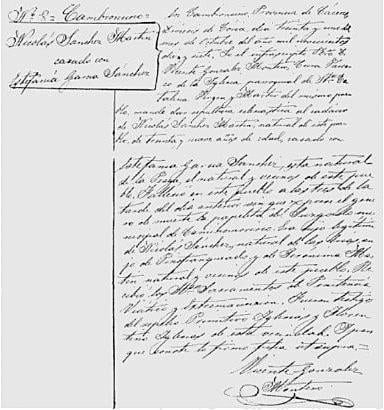 Nº 8 = Cambroncino =
Nicolás Sanchez Martin
casado con
Estefania Garcia Sánchez
En Cambroncino, Provincia de Caceres,
Diocesis de Coria dia treinta y uno de
mes de Octubre del año mil novecientos
diez y siete, Yo el infrascripto D.
Vicente Gonzalez Montero, Cura Parroco
de la Iglesia parroquial de Sta. Ca-
talina Virgen y Martir del mismo pue-
blo, mandé dar sepultura eclesiastica al cadaver
de Nicolás Sánchez Martin, natural de este pue-
blo, de treinta y nueve años de edad, casado con
Estefania Garcia Sanchez, esta natural
de la Pesga, el natural y vecinos de este pue-
blo. Falleció en este pueblo a las tres de la
tarde del dia anterior sin que exprese el gene-
ro de muerte la papeleta del Juzgado mu-
nicipal de Camin. Era hijo legitimo
de Nicolás Sanchez, natural de
de Pinofranqueado, y de Geronima Mar-
tin natural y vecinos de este pueblo. Re-
cibió los Stos. Sacramentos de Penitencia
Viático y Extremauncion. Fueron testigos
del sepelio Primitivo Iglesias y Floren-
tino Iglesias de esta vecindad. Y para
que conste lo firmo fecha ut supra =
Vicente Gonzalez
Montero